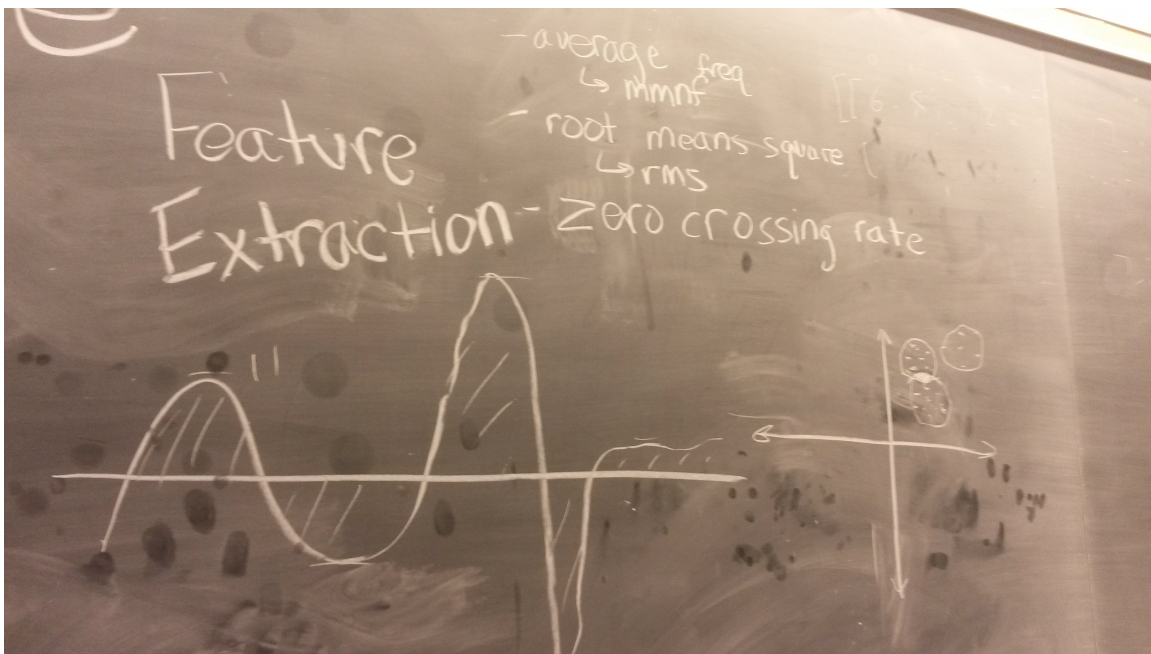 Feature
Extraction
- average freq
↳ mmnf
- root means square
↳ rms
- zero crossing rate